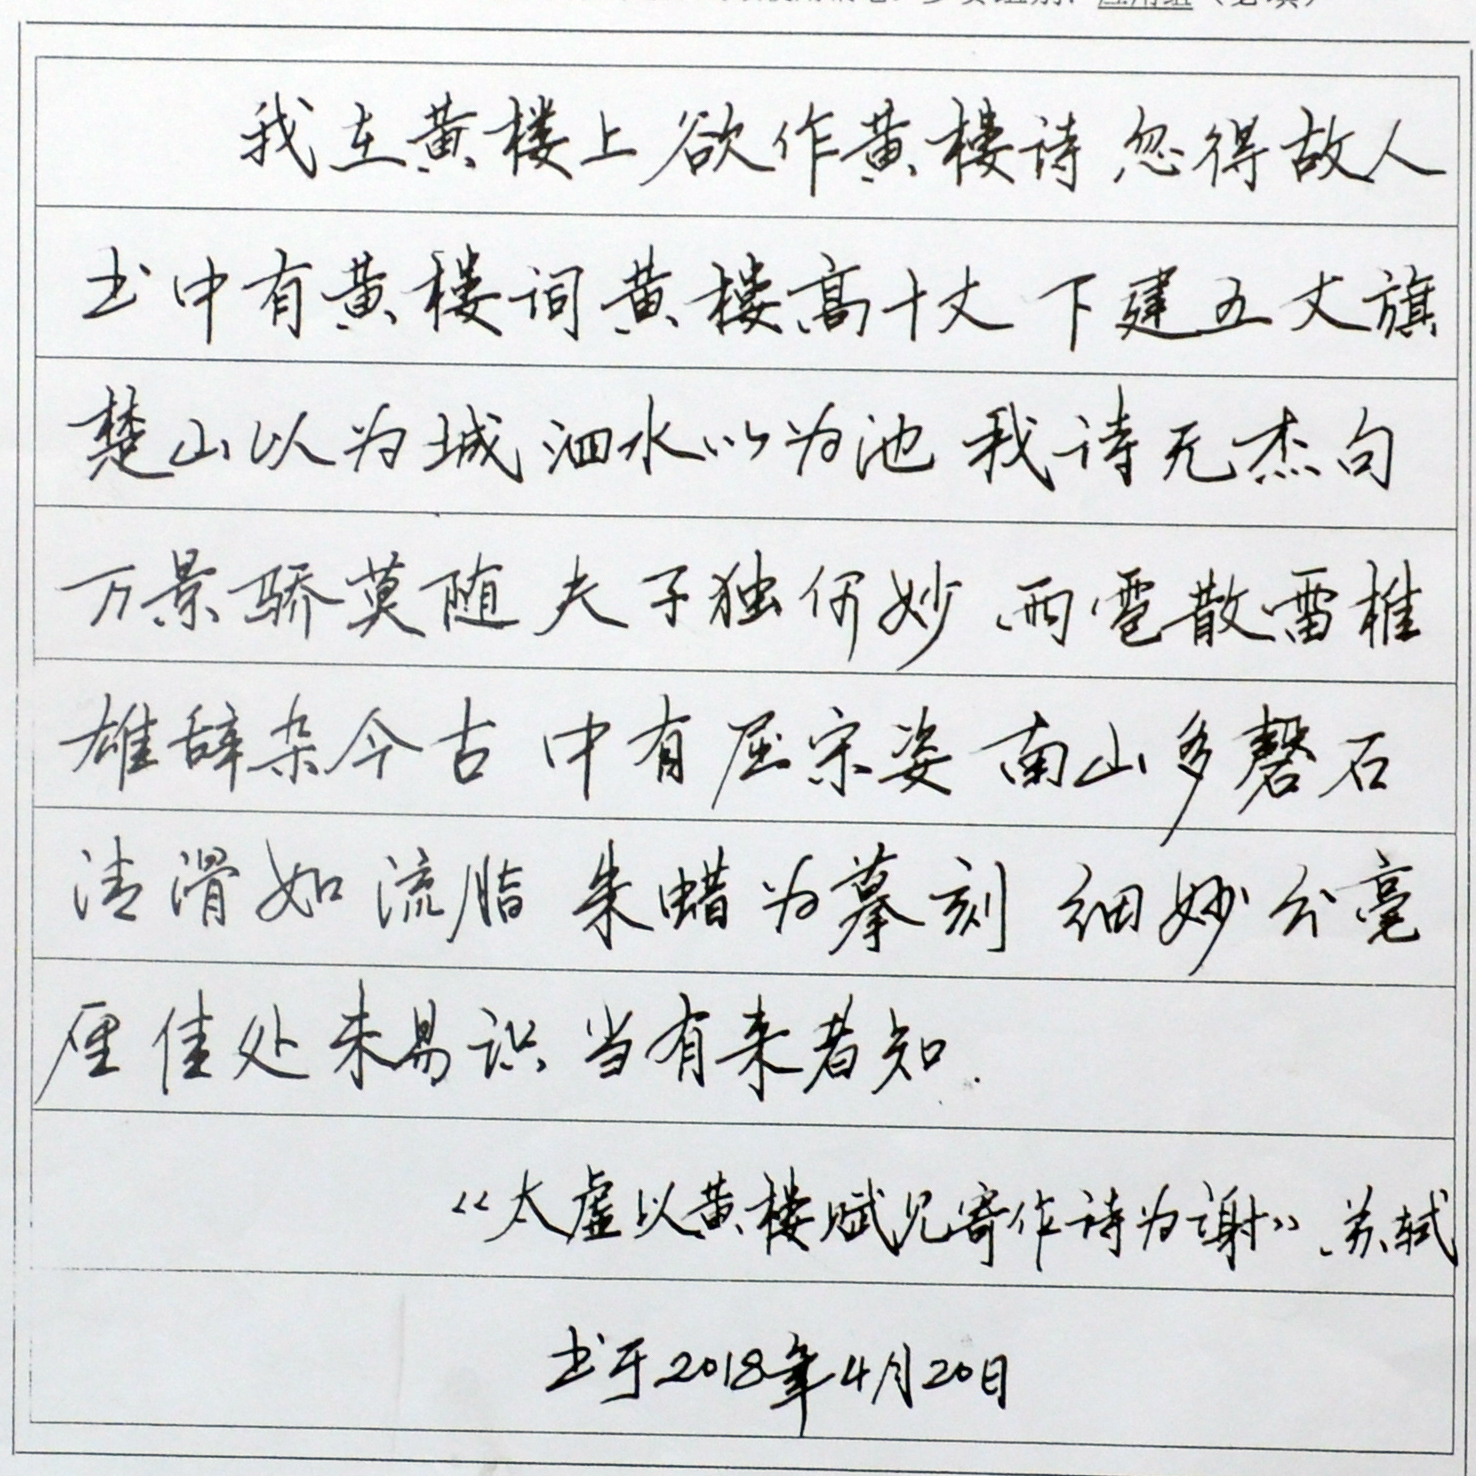 我在黄楼上 欲作黄楼诗 忽得故人
书中有黄楼词黄楼高十丈 下建五丈旗
楚山以为城 泗水以为池 我诗无杰句
万景骄莫随 夫子独何妙 雨雹散雷椎
雄辞杂今古 中有屈宋姿 南山多磬石
清滑如流脂 朱蜡为摹刻 细妙分毫
厘佳处未易识 当有来者知.
《太虚以黄楼赋见寄作诗为谢》苏轼
书于2018年4月20日